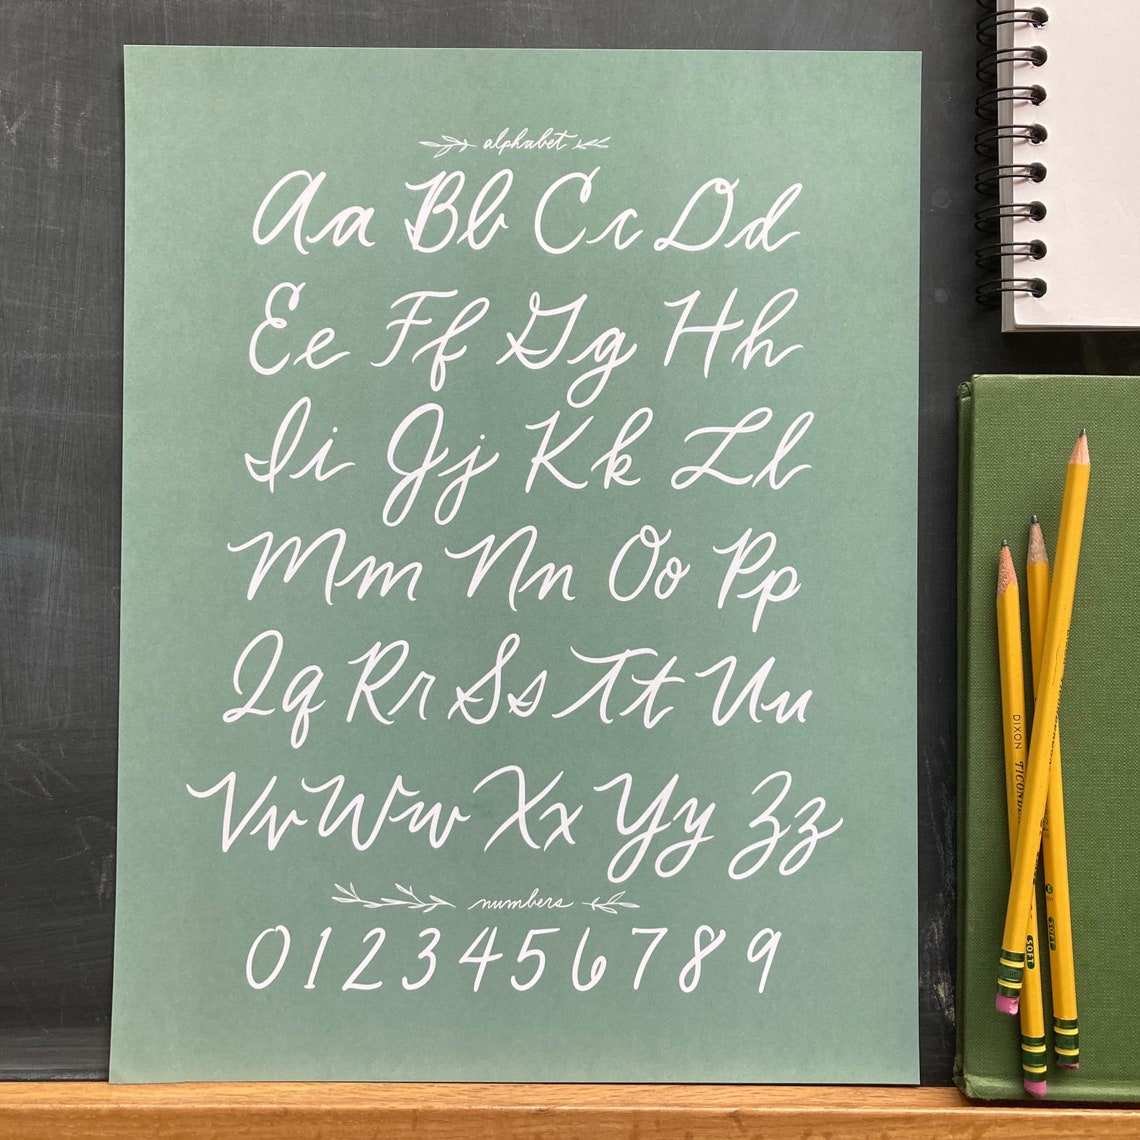 alphabet
Aa Bb Cc Dd
Ee Ff Gg Hh
Ii Jj Kk Ll
Mm Nn Oo Pp
Qq Rr Ss Tt Uu
Vv Ww Xx Yy Zz
numbers
0 1 2 3 4 5 6 7 8 9
DIXON
SOFT
SOFT